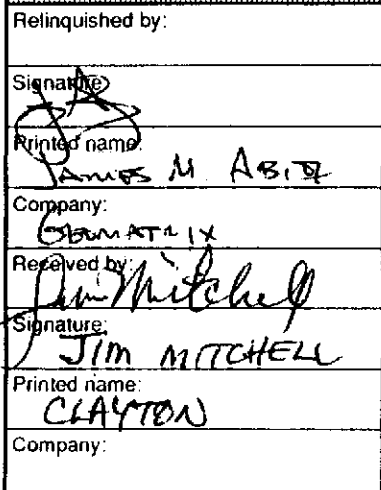 Relinquished by:
Signature:
Printed name:
JAMES M. ABITZ
Company:
GEOMATRIX
Received by:
Jim Mitchell
Signature:
JIM MITCHELL
Printed name:
CLAYTON
Company: